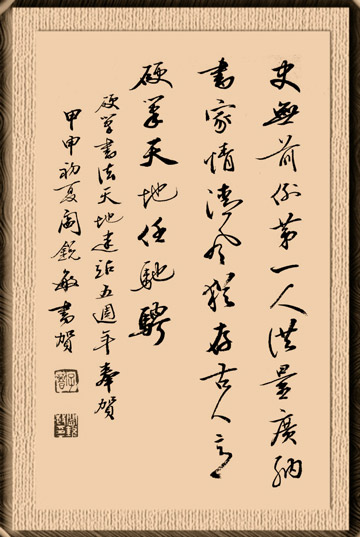 史無前例第一人洪量廣納
書家情清風猶存古人言
硬筆天地任馳騁
硬筆書法天地建站五週年奉賀
甲申初夏閻銳敏書賀